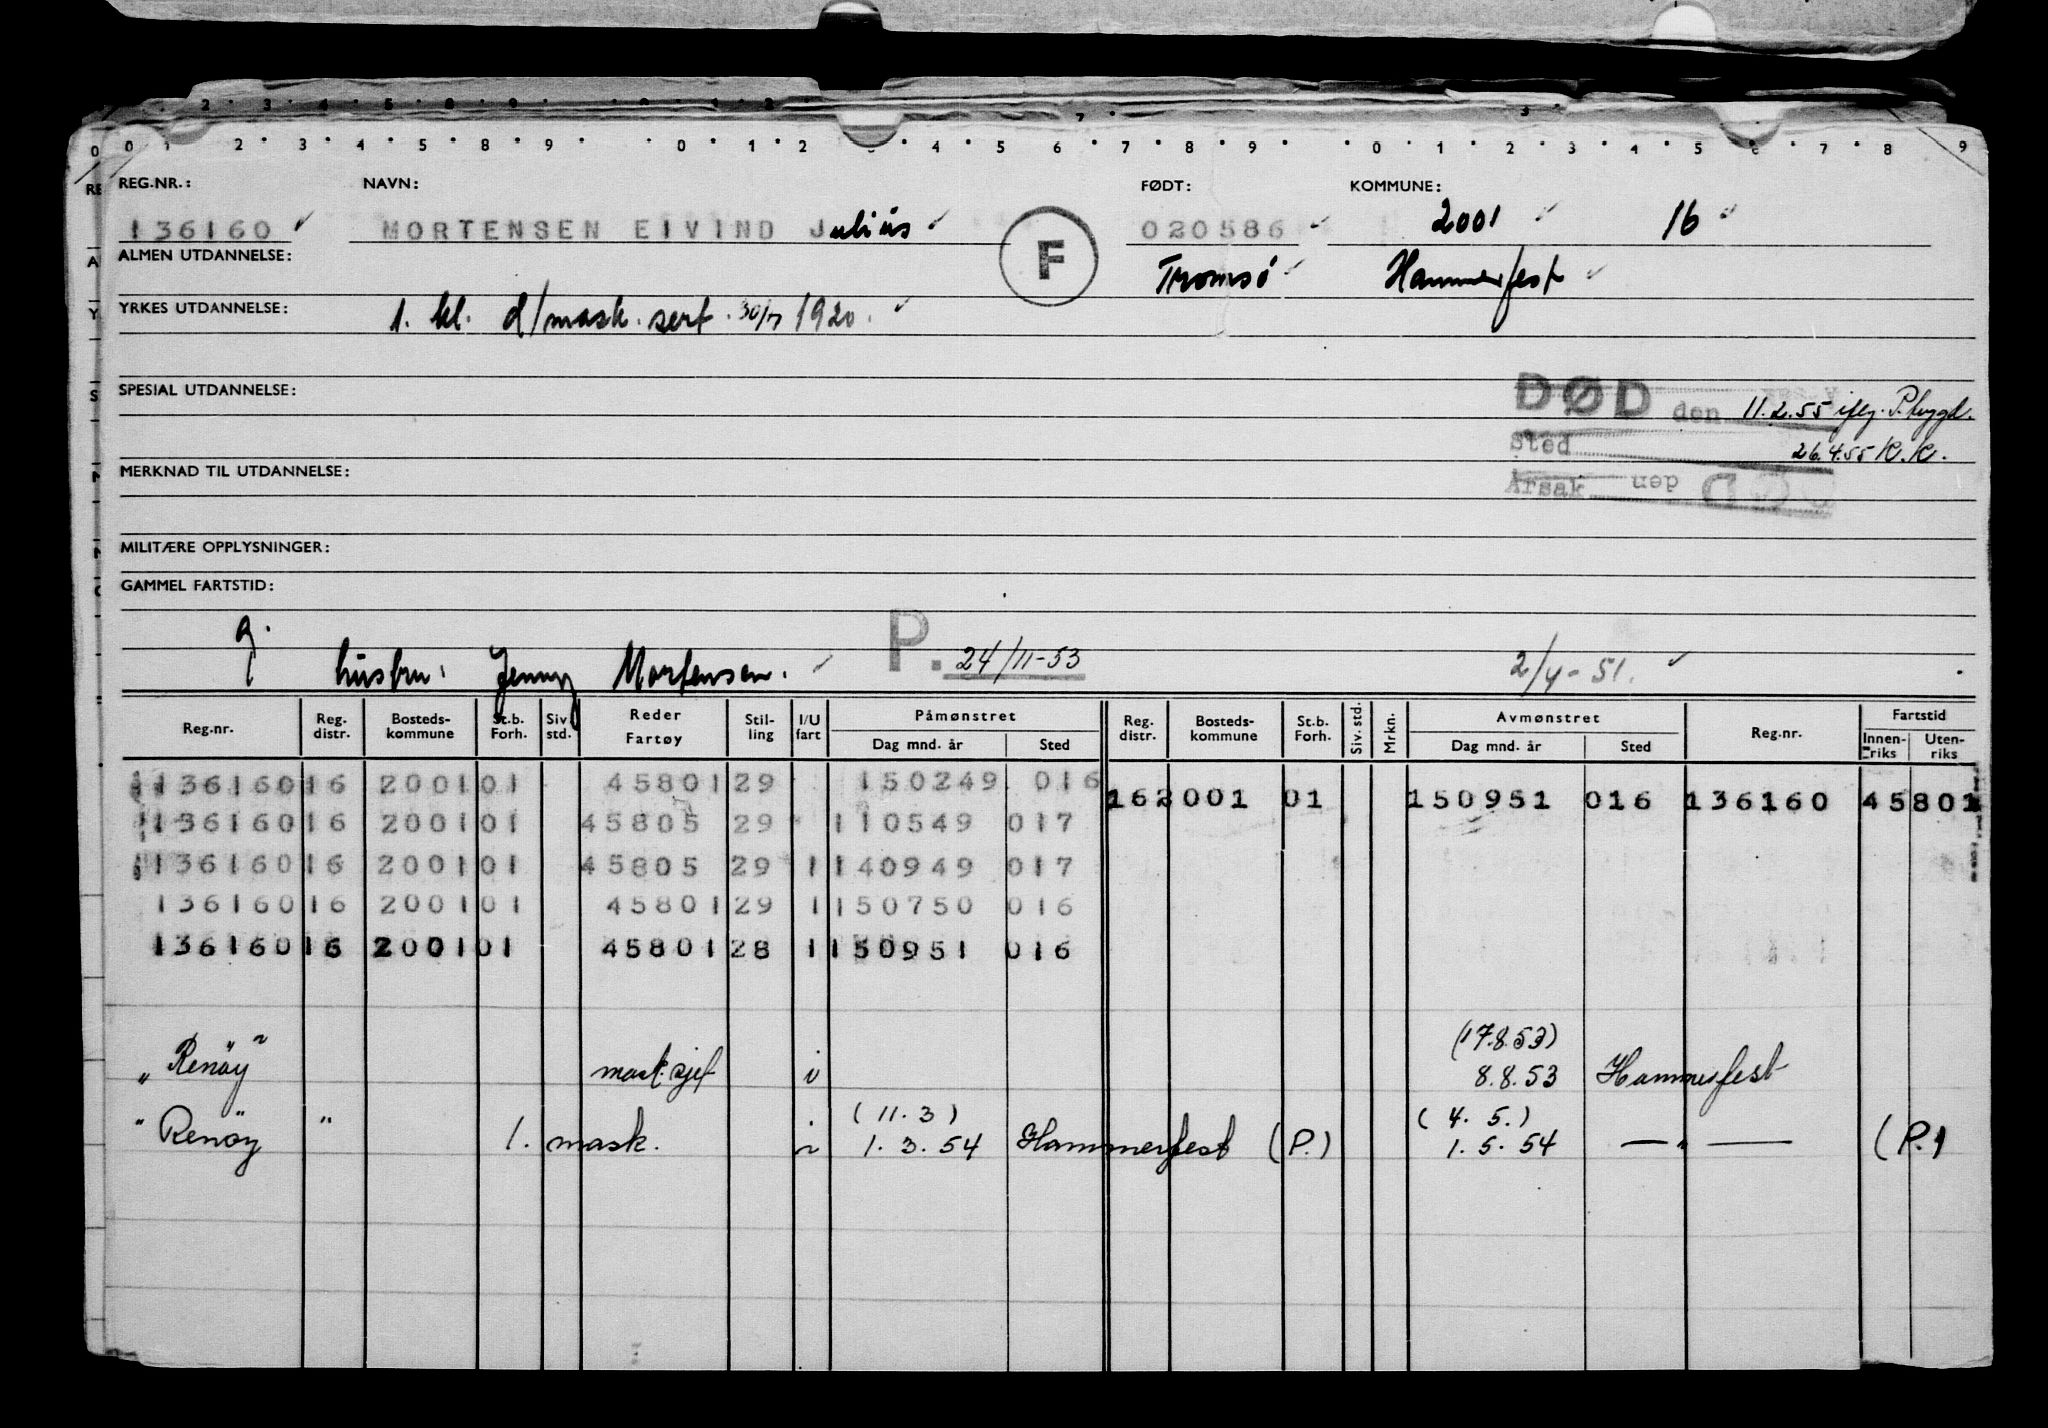 0 1 2 3 4 5 8 9 0 1 2 3 4 5 6 7 8 9 0 1 2 3 4 5 6 7 8 9
REG.NR.: NAVN: FØDT: KOMMUNE:
136160 MORTENSEN EIVIND Julius 020586 2001 16
ALMEN UTDANNELSE: F Tromsø Hammerfest
YRKES UTDANNELSE: 1. kl. d/mask. sert. 30/7 1920.
SPESIAL UTDANNELSE: DØD den 11.2.55 iflg. P.trygd.
Sted 26.4.55 K.K.
MERKNAD TIL UTDANNELSE:
Årsak den
MILITÆRE OPPLYSNINGER:
GAMMEL FARTSTID:
g.
hustru: Jenny Mortensen. P. 24/11-53 2/4-51.
Reg.nr. Reg. distr. Bosteds-kommune St.b. Forh. Siv. std. Reder Fartøy Stil-ling I/U fart Påmønstret Dag mnd. år Sted Reg. distr. Bosteds-kommune St.b. Forh. Siv. std. Mrkn. Avmønstret Dag mnd. år Sted Reg.nr. Fartstid Innen-riks Uten-riks
136160 16 2001 01 45801 29 150249 016 16 2001 01 150951 016 136160 45801
136160 16 2001 01 45805 29 110549 017
136160 16 2001 01 45805 29 1 140949 017
136160 16 2001 01 45801 29 1 150750 016
136160 16 2001 01 45801 28 1 150951 016
(17.8.53)
"Renöy" mask.sjef i 8.8.53 Hammerfest
(11.3) (4.5.)
"Renöy" 1. mask. i 1.3.54 Hammerfest (P.) 1.5.54 — " — (P.)